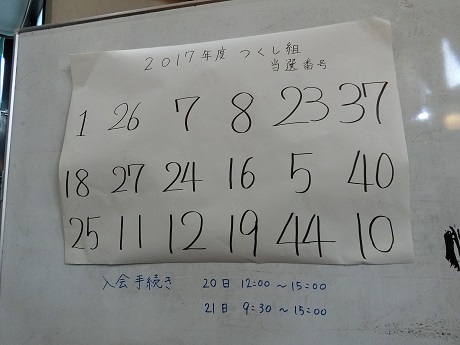 2017年度 つくし組
当選番号
1 26 7 8 23 37
18 27 24 16 5 40
25 11 12 19 44 10
入会手続き 20日 12:00~15:00
21日 9:30~15:00